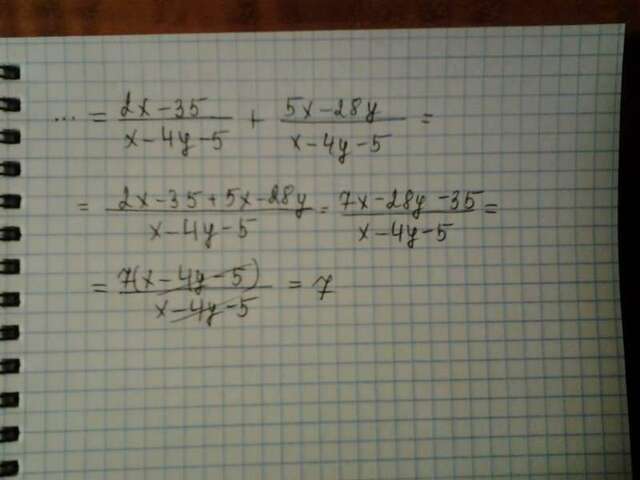 ... = (2x-35)/(x-4y-5) + (5x-28y)/(x-4y-5) =
= (2x-35+5x-28y)/(x-4y-5) = (7x-28y-35)/(x-4y-5) =
= 7(x-4y-5)/(x-4y-5) = 7